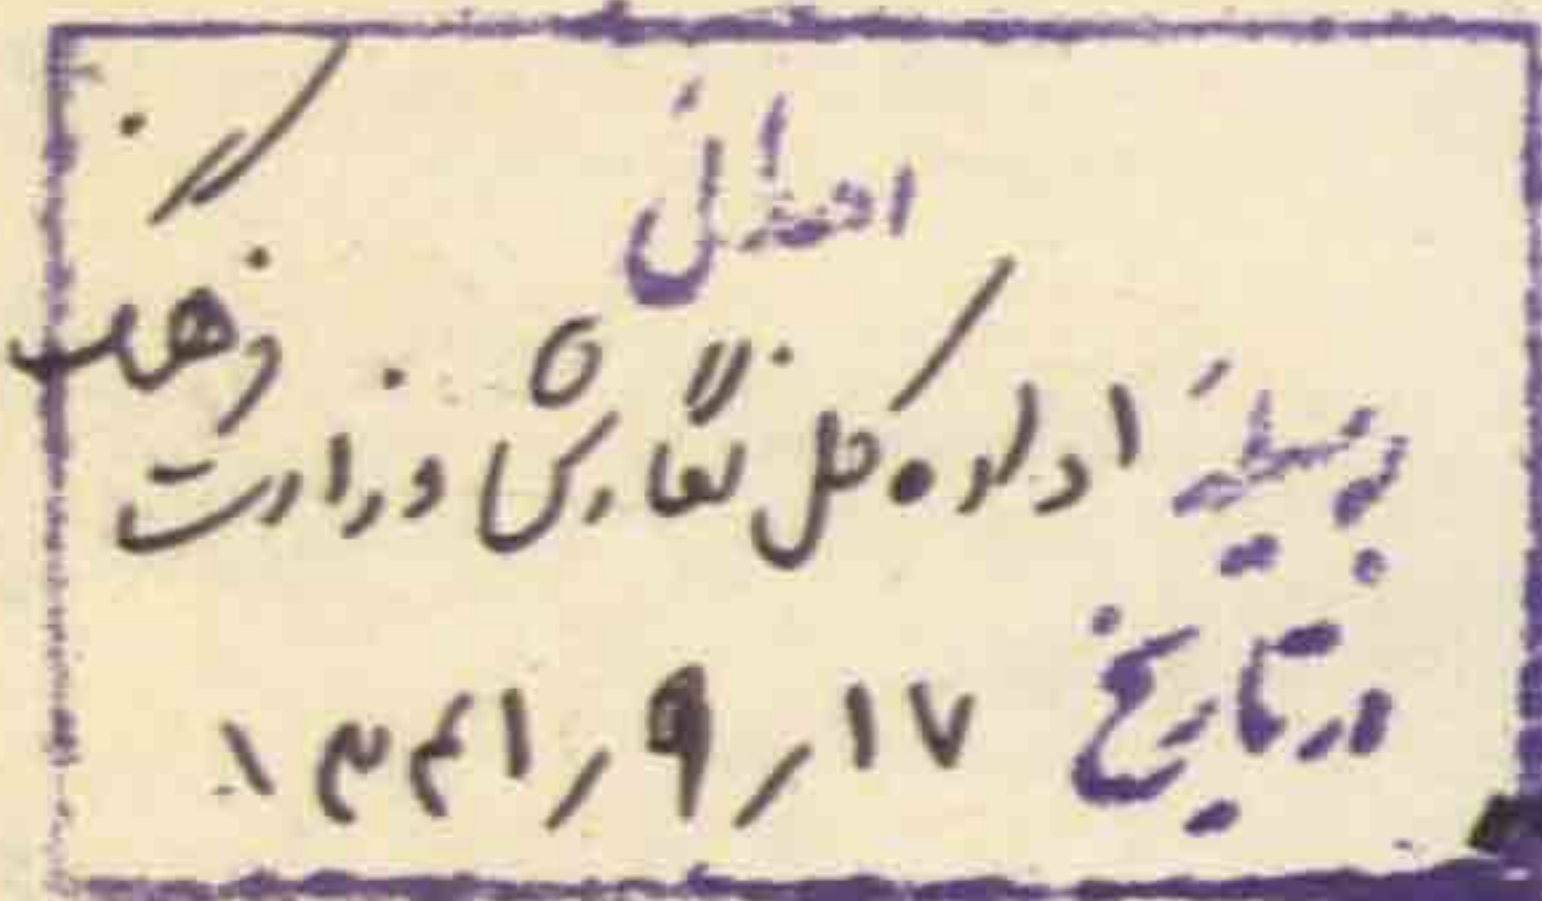 اهدائی
بوسیلهٔ ادارهٔ کل نگارش وزارت فرهنگ
در تاریخ ۱۳۴۱/۹/۱۷